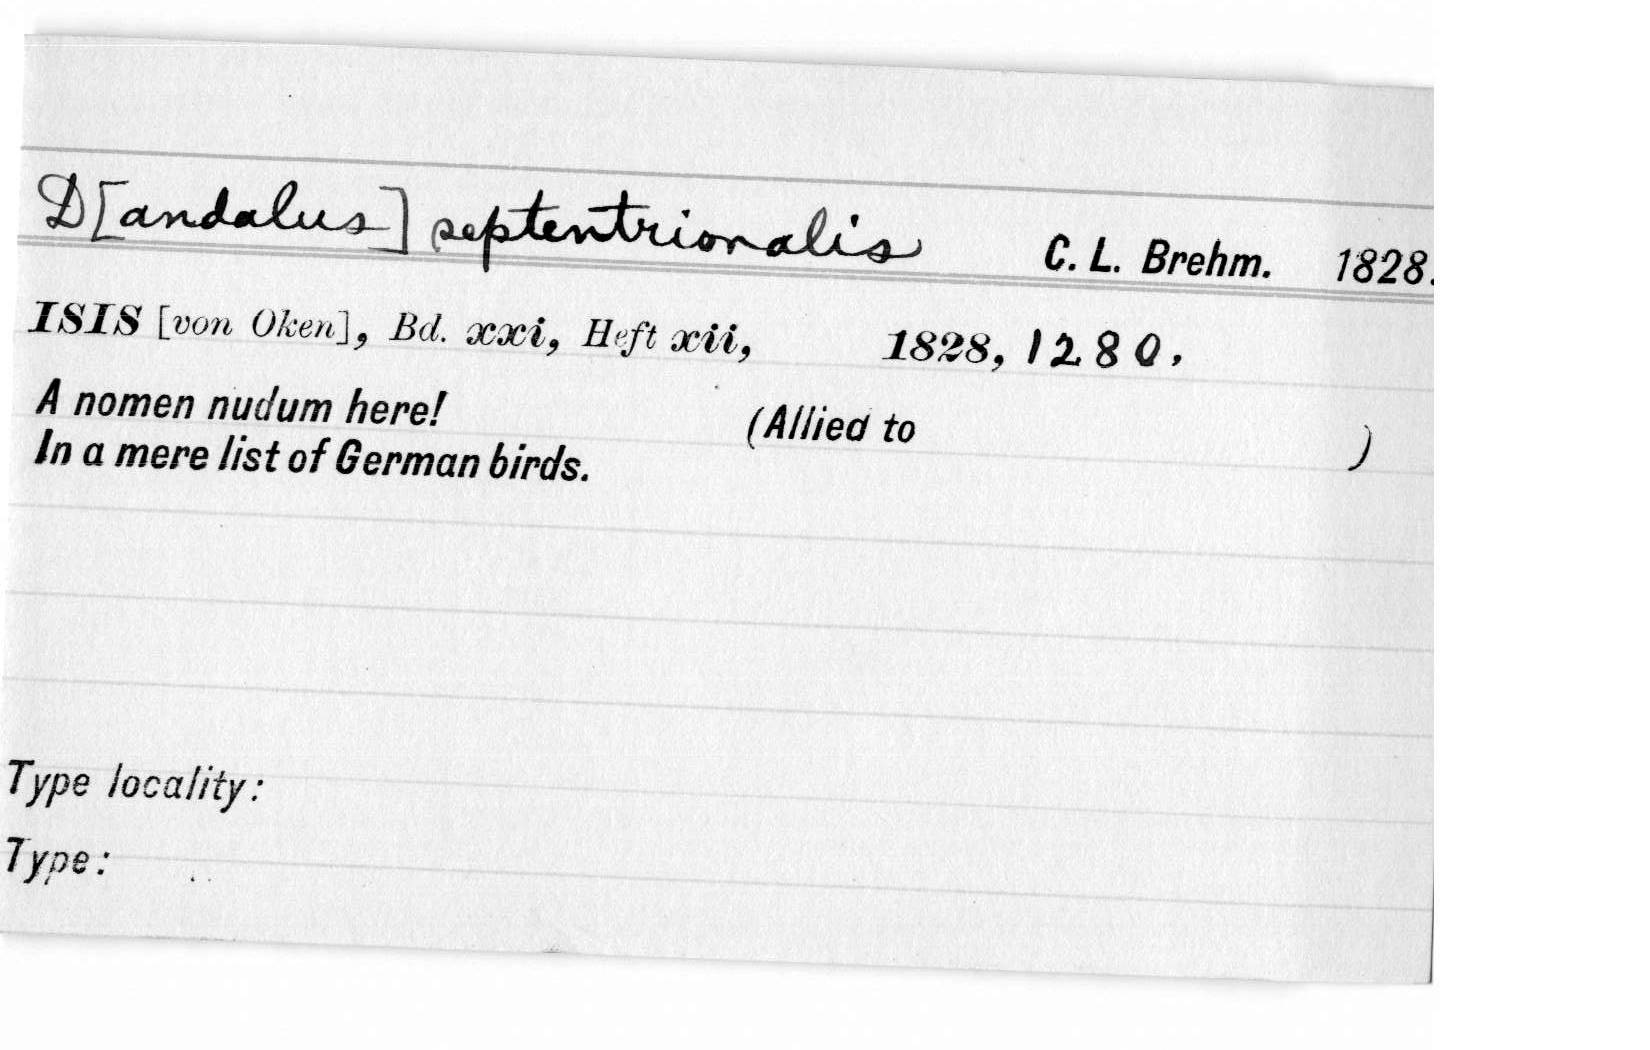 D[andalus] septentrionalis C. L. Brehm. 1828.
ISIS [von Oken], Bd. xxi, Heft xii, 1828, 1280.
A nomen nudum here! (Allied to )
In a mere list of German birds.
Type locality:
Type: